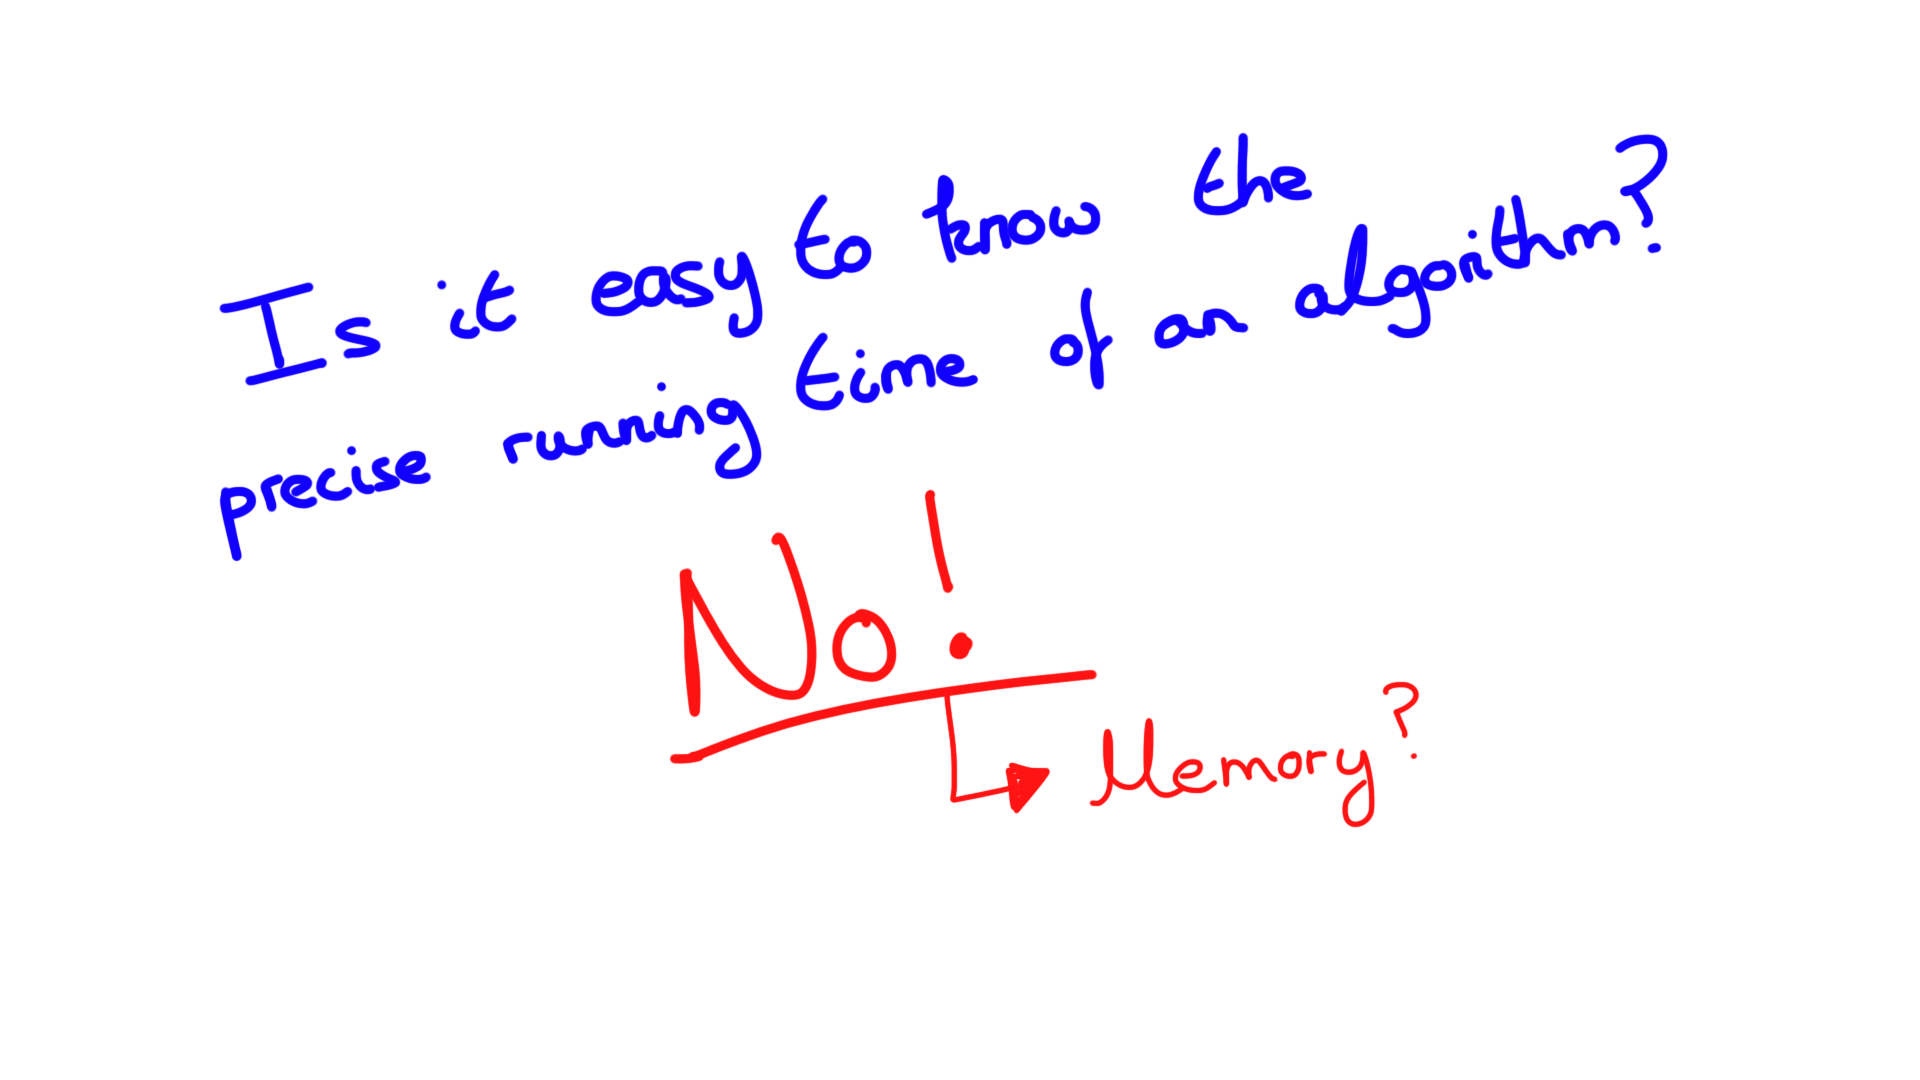 Is it easy to know the
precise running time of an algorithm?
No!
Memory?